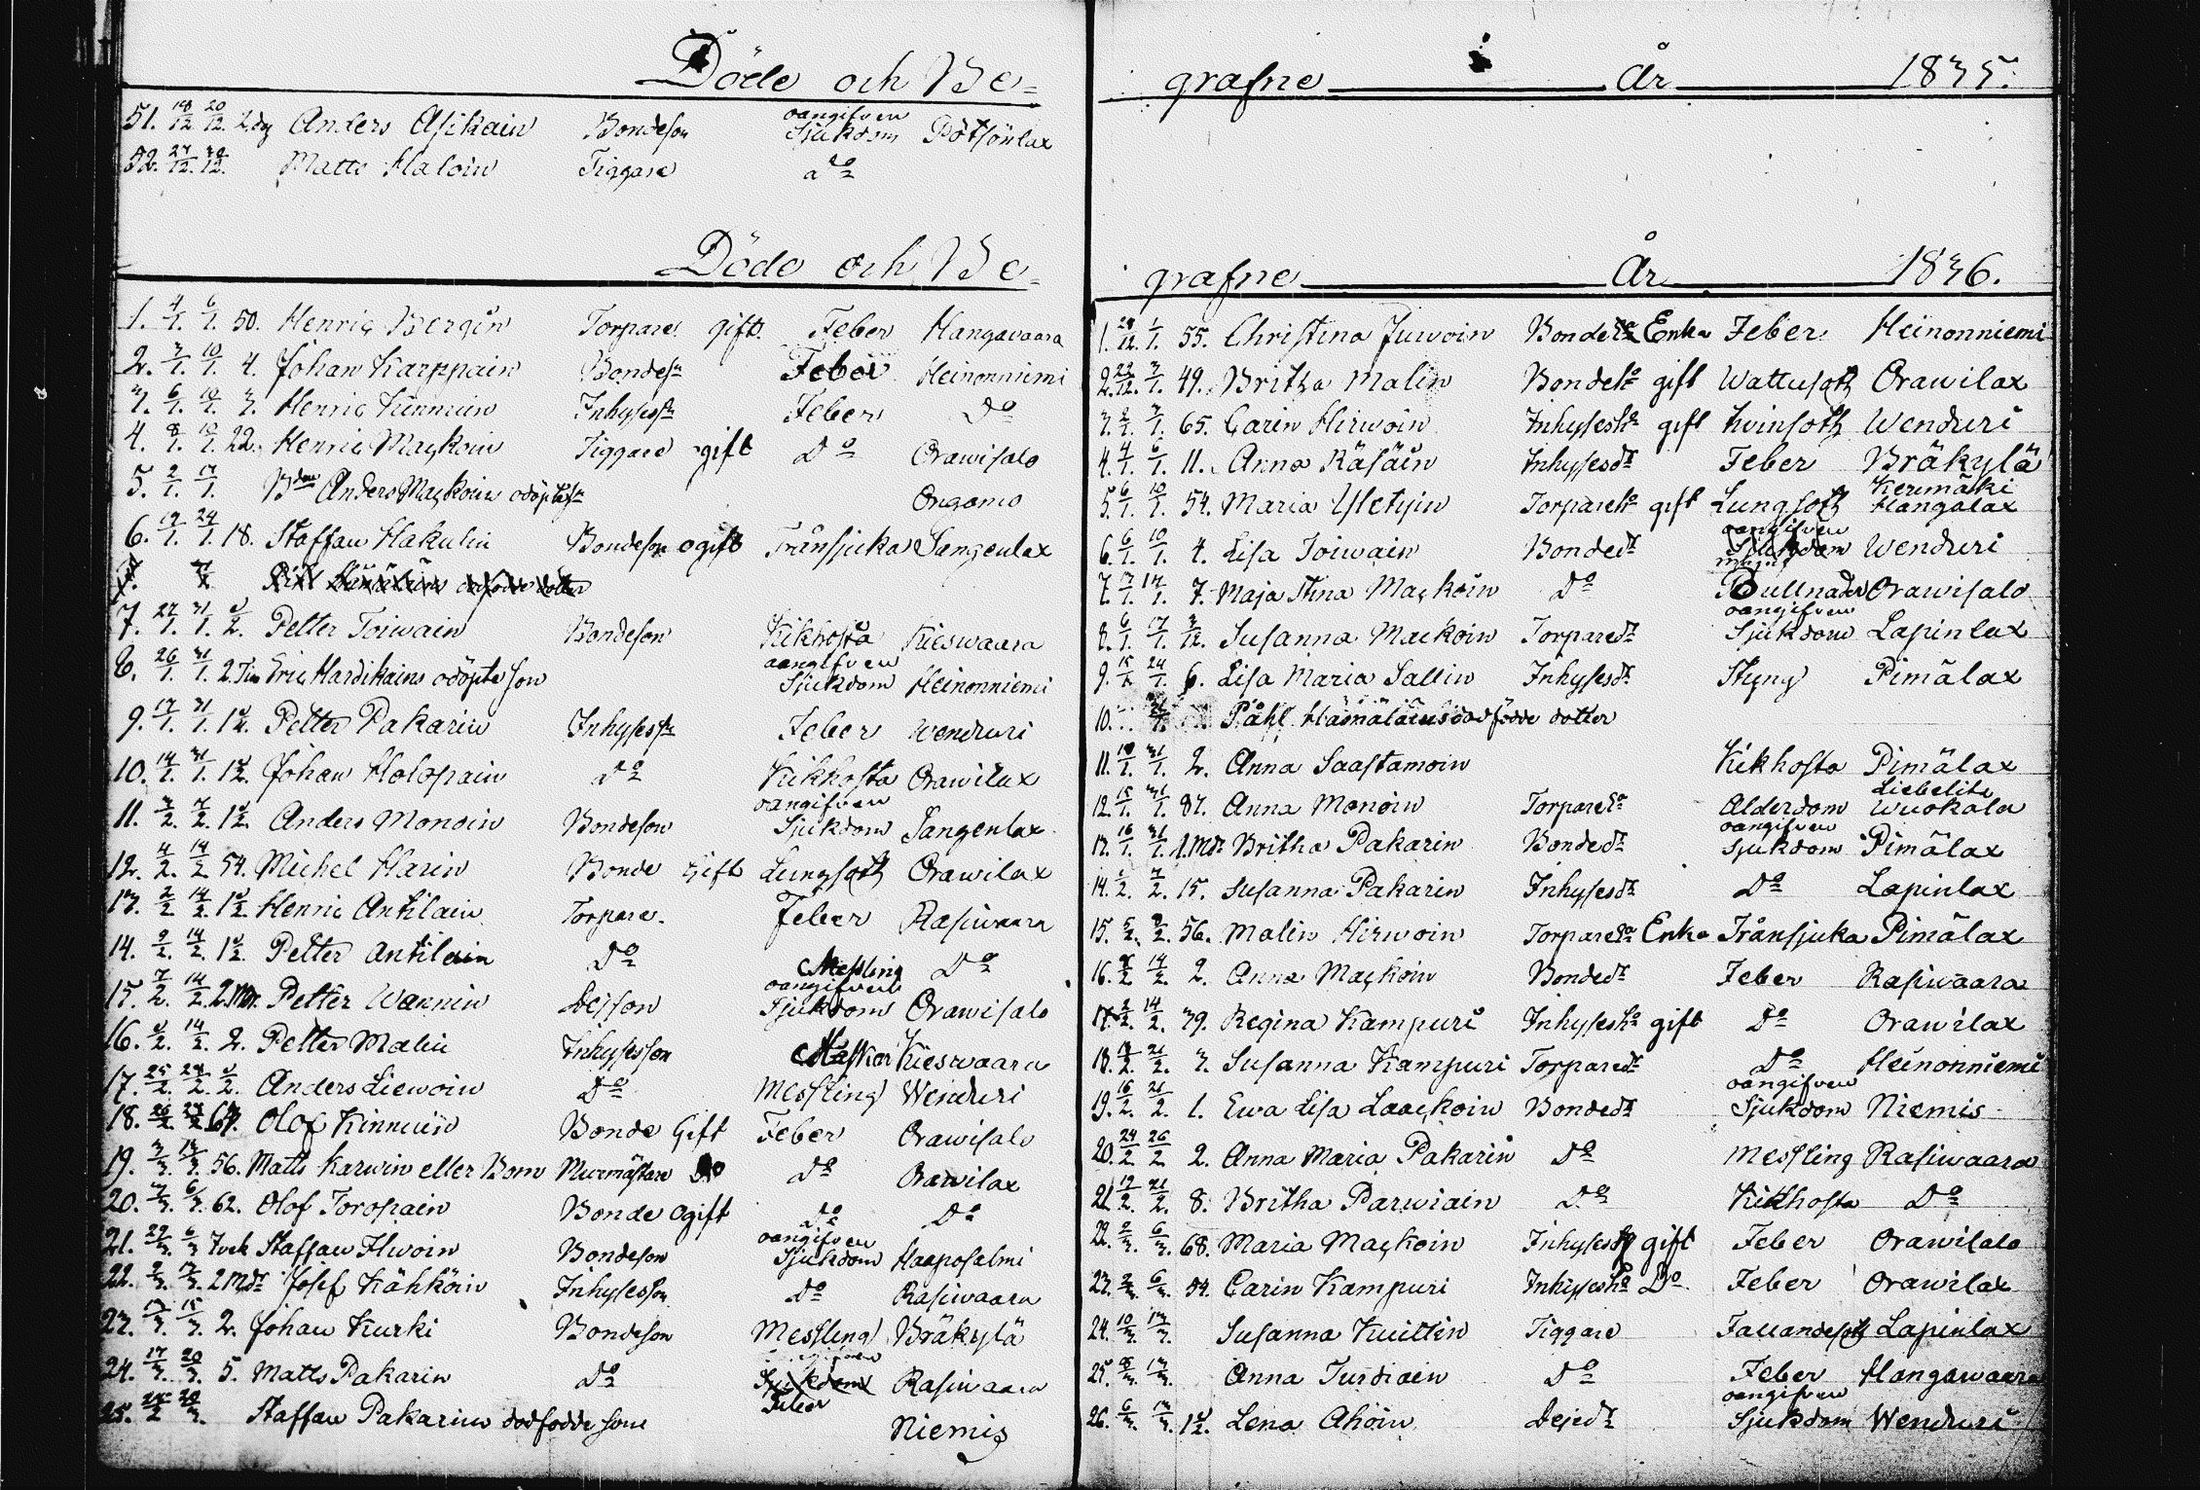 Döde och Be=
51. 18/12. 20/12. 2. dg Anders Asikain Bondeson oangifven Sjukdom Pötsönlax
52. 27/12. Matts Haloin Tiggare do
Döde och Be=
1. 4/1. 6/1. 50. Henric Bergin Torpare gift. Feber Hangavaara
2. 3/1. 10/1. 4. Johan Karppain Bondesn Feber Heinonniemi
3. 6/1. 10/1. 3. Henric Kinnuin Inhysessn Feber Do
4. 8/1. 10/1. 22. Henric Mackoin Tiggare ogift Do Orawisalo
5. 2/1. 17/1. Bden Anders Mackoins odöpte sn Ongomo
6. 19/1. 24/1. 18. Staffan Hakulin Bondeson ogift Trånsjuka Jangenlax
7. 27/1. 31/1. 1/2. Petter Toiwain Bondeson Kikhosta Kieswaara
8. 26/1. 31/1. 2. Tim Eric Hardikains odöpte son oangifven Sjukdom Heinonniemi
9. 17/1. 31/1. 1 1/2. Petter Pakarin Inhysessn Feber Wenduri
10. 14/1. 31/1. 1 1/2. Johan Holopain do Kikhosta Orawilax
11. 3/2. 7/2. 1 1/2. Anders Monoin Bondeson oangifven Sjukdom Jangenlax
12. 4/2. 14/2 54. Michel Harin Bonde Gift Lungsoth Orawilax
13. 2/2 14/2. 1 1/2. Henric Antilain Torpare. Feber Rasiwaara
14. 9/2 14/2. 1 1/2. Petter Antilain Do Messling Do
15. 7/2. 14/2. 2. Mdr. Petter Wannin Dejson oangifven Sjukdom Orawisalo
16. 14/2. 2. Petter Malin Inhysesson Kieswaara
17. 25/2. 28/2. 1/2. Anders Liewoin Do Messling Wenduri
18. 26/2. Olof Kinnuin Bonde Gift Feber Orawisalo
19. 3/3. 13/3. 56. Matts Karwin eller Bom Murmästare Do do Orawilax
20. 3/3. 6/3. 62. Olof Toropain Bonde ogift do Do
21. 6/3 Staffan Hwoin Bondeson oangifven Sjukdom Haaposalmi
22. 2/3. 13/3. 2 Mdr Josef Kähköin Inhysesson do Rasiwaara
23. 13/3. 15/3. 2. Johan Kurki Bondeson Messling Bräkylä
24. 17/3. 20/3. 5. Matts Pakarin do Feber Rasiwaara
25. 20/3. Staffan Pakarins dödfödde sone Niemis
grafne År 1835.
grafne År 1836.
1. 28/12. 1/1. 55. Christina Juwoin Bonde Enka Feber Heinonniemi
2. 22/12. 3/1. 49. Britha Malin Bondeho gift Wattusoth Orawilax
3. 2/1. 3/1. 65. Carin Hirwoin Inhyseshо gift Kvinsoth Wenduri
4. 4/1. 6/1. 11. Anna Räsäin Inhysesdr Feber Bräkylä
5. 6/1. 10/1. 54. Maria Yletyin Torpareho gift Lungsoth Kerimäki Hangalax
6. 6/1. 10/1. 4. Lisa Toiwain Bondedr oangifven Sjukdom Wenduri
7. 7/1. 14/1. 7. Maja Stina Mackoin Do Bullnader Orawisalo
8. 6/1. 17/1. 3/12. Susanna Mackoin Torparedr oangifven Sjukdom Lapinlax
9. 15/1. 24/1. 6. Lisa Maria Sallin Inhysesdr Styng Pimälax
10. Påhl Hämäläins dödfödde dotter
11. 19/1. 31/1. 2. Anna Saastamoin Kikhosta Pimälax
12. 15/1. 31/1. 87. Anna Monoin Torpare Alderdom Liebelits Wuokala
13. 16/1. 31/1. 1. Mdr Britha Pakarin Bondedr oangifven Sjukdom Pimälax
14. 1/2. 7/2. 15. Susanna Pakarin Inhysesdr Do Lapinlax
15. 5/2. 8/2. 56. Malin Hirwoin Torpare Enka Trånsjuka Pimälax
16. 14/2. 2. Anna Mackoin Bondedr Feber Rasiwaara
17. 2/2. 14/2. 39. Regina Kampuri Inhyseshо gift Do Orawilax
18. 21/2. 3. Susanna Kampuri Torparedr Do Heinonniemi
19. 16/2. 21/2. 1. Ewa Lisa Laackoin Bondedr oangifven Sjukdom Niemis
20. 24/2 26/2 2. Anna Maria Pakarin Do Messling Rasiwaara
21. 19/2. 21/2. 8. Britha Parwiain Do Kikhosta Do
22. 2/3. 6/3. 68. Maria Mackoin gift Feber Orawisalo
23. 2/3. 6/3. 54. Carin Kampuri Inhyseshо Do Feber Orawilax
24. 10/3. 13/3. Susanna Kuittin Tiggare Fallandesoth Lapinlax
25. 8/3. 13/3. Anna Turdiain Do Feber Hangawaara
26. 6/3. 13/3. 1 1/2. Lena Ahoin Dejedr oangifven Sjukdom Wenduri